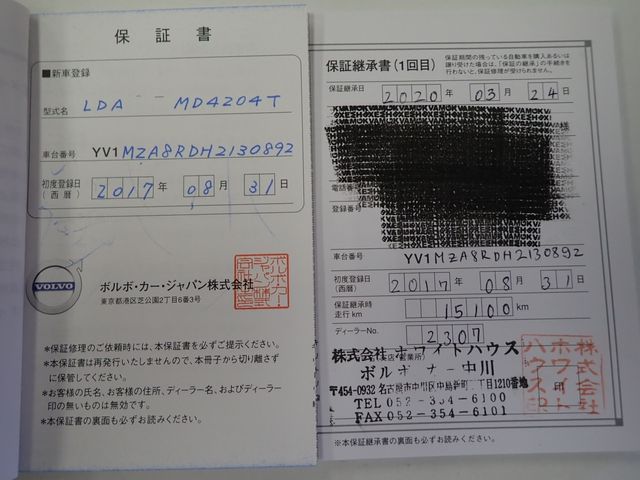 保証書
■新車登録
型式名 LDA - MD4204T
車台番号 YV1MZA8RDH2130892
初度登録日(西暦) 2017年 08月 31日
VOLVO
ボルボ・カー・ジャパン株式会社
東京都港区芝公園2丁目6番3号
*保証修理のご依頼時には、本保証書を必ずご提示ください。
*本保証書は再発行いたしませんので、本冊子から切り離さず
に保管してください。
*お客様の氏名、お客様の住所、ディーラー名、およびディーラー
印の無いものは無効です。
*本保証書の裏面も必ずお読みください。
保証継承書(1回目)
保証期間の残っている自動車を購入あるいは
譲り受けた場合は、「保証の継承」の手続きを
行わないと、保証修理が受けられません。
保証継承日 2020年 03月 24日
様
電話番号
登録番号
車台番号 YV1MZA8RDH2130892
初度登録日(西暦) 2017年 08月 31日
保証継承時走行 km 15100 km
ディーラーNo. 2307
株式会社ホワイトハウス
ボルボカー中川
〒454-0932 名古屋市中川区中島新町 丁目1210番地
TEL 052-354-6100
FAX 052-354-6101
印
株式会社ホワイトハウス
※本保証継承書の裏面も必ずお読みください。